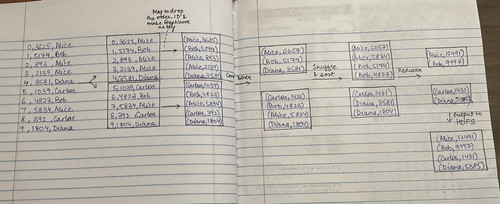 0, 3625, Alice
1, 5174, Bob
0, 893, Alice
3, 2139, Alice
4, 3581, Diana
5, 1039, Carlos
6, 4823, Bob
7, 5834, Alice
8, 392, Carlos
9, 1804, Diana
0, 3625, Alice
1, 5174, Bob
2, 893, Alice
3, 2139, Alice
4, 3581, Diana
5, 1039, Carlos
6, 4823, Bob
7, 5834, Alice
8, 392, Carlos
9, 1804, Diana
Map to drop
the order ID's
make EmpName
as key
(Alice, 3625)
(Bob, 5174)
(Alice, 893)
(Alice, 2139)
(Diana, 3581)
(Carlos, 1039)
(Bob, 4823)
(Alice, 5834)
(Carlos, 392)
(Diana, 1804)
Combiner
(Alice, 6657)
(Bob, 5174)
(Diana, 3581)
(Carlos, 1431)
(Bob, 4823)
(Alice, 5834)
(Diana, 1804)
Shuffle
& sort
(Alice, 6657)
(Alice, 5834)
(Bob, 5174)
(Bob, 4823)
(Carlos, 1431)
(Diana, 3581)
(Diana, 1804)
Reducer
(Alice, 12491)
(Bob, 9997)
(Carlos, 1431)
(Diana, 5385)
Output to
HDFS
(Alice, 12491)
(Bob, 9997)
(Carlos, 1431)
(Diana, 5385)